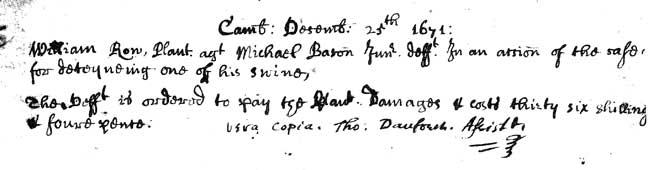 Camb: Desemb: 25th 1671:
William Row, Plant. agt Michael Baron Junr. defft. In an action of the case,
for deteyneing one of his swine,
The Defft is ordered to pay the Plant. Damages & costs thirty six shilling
& foure pence. vera Copia. Tho. Danforth. Assist.